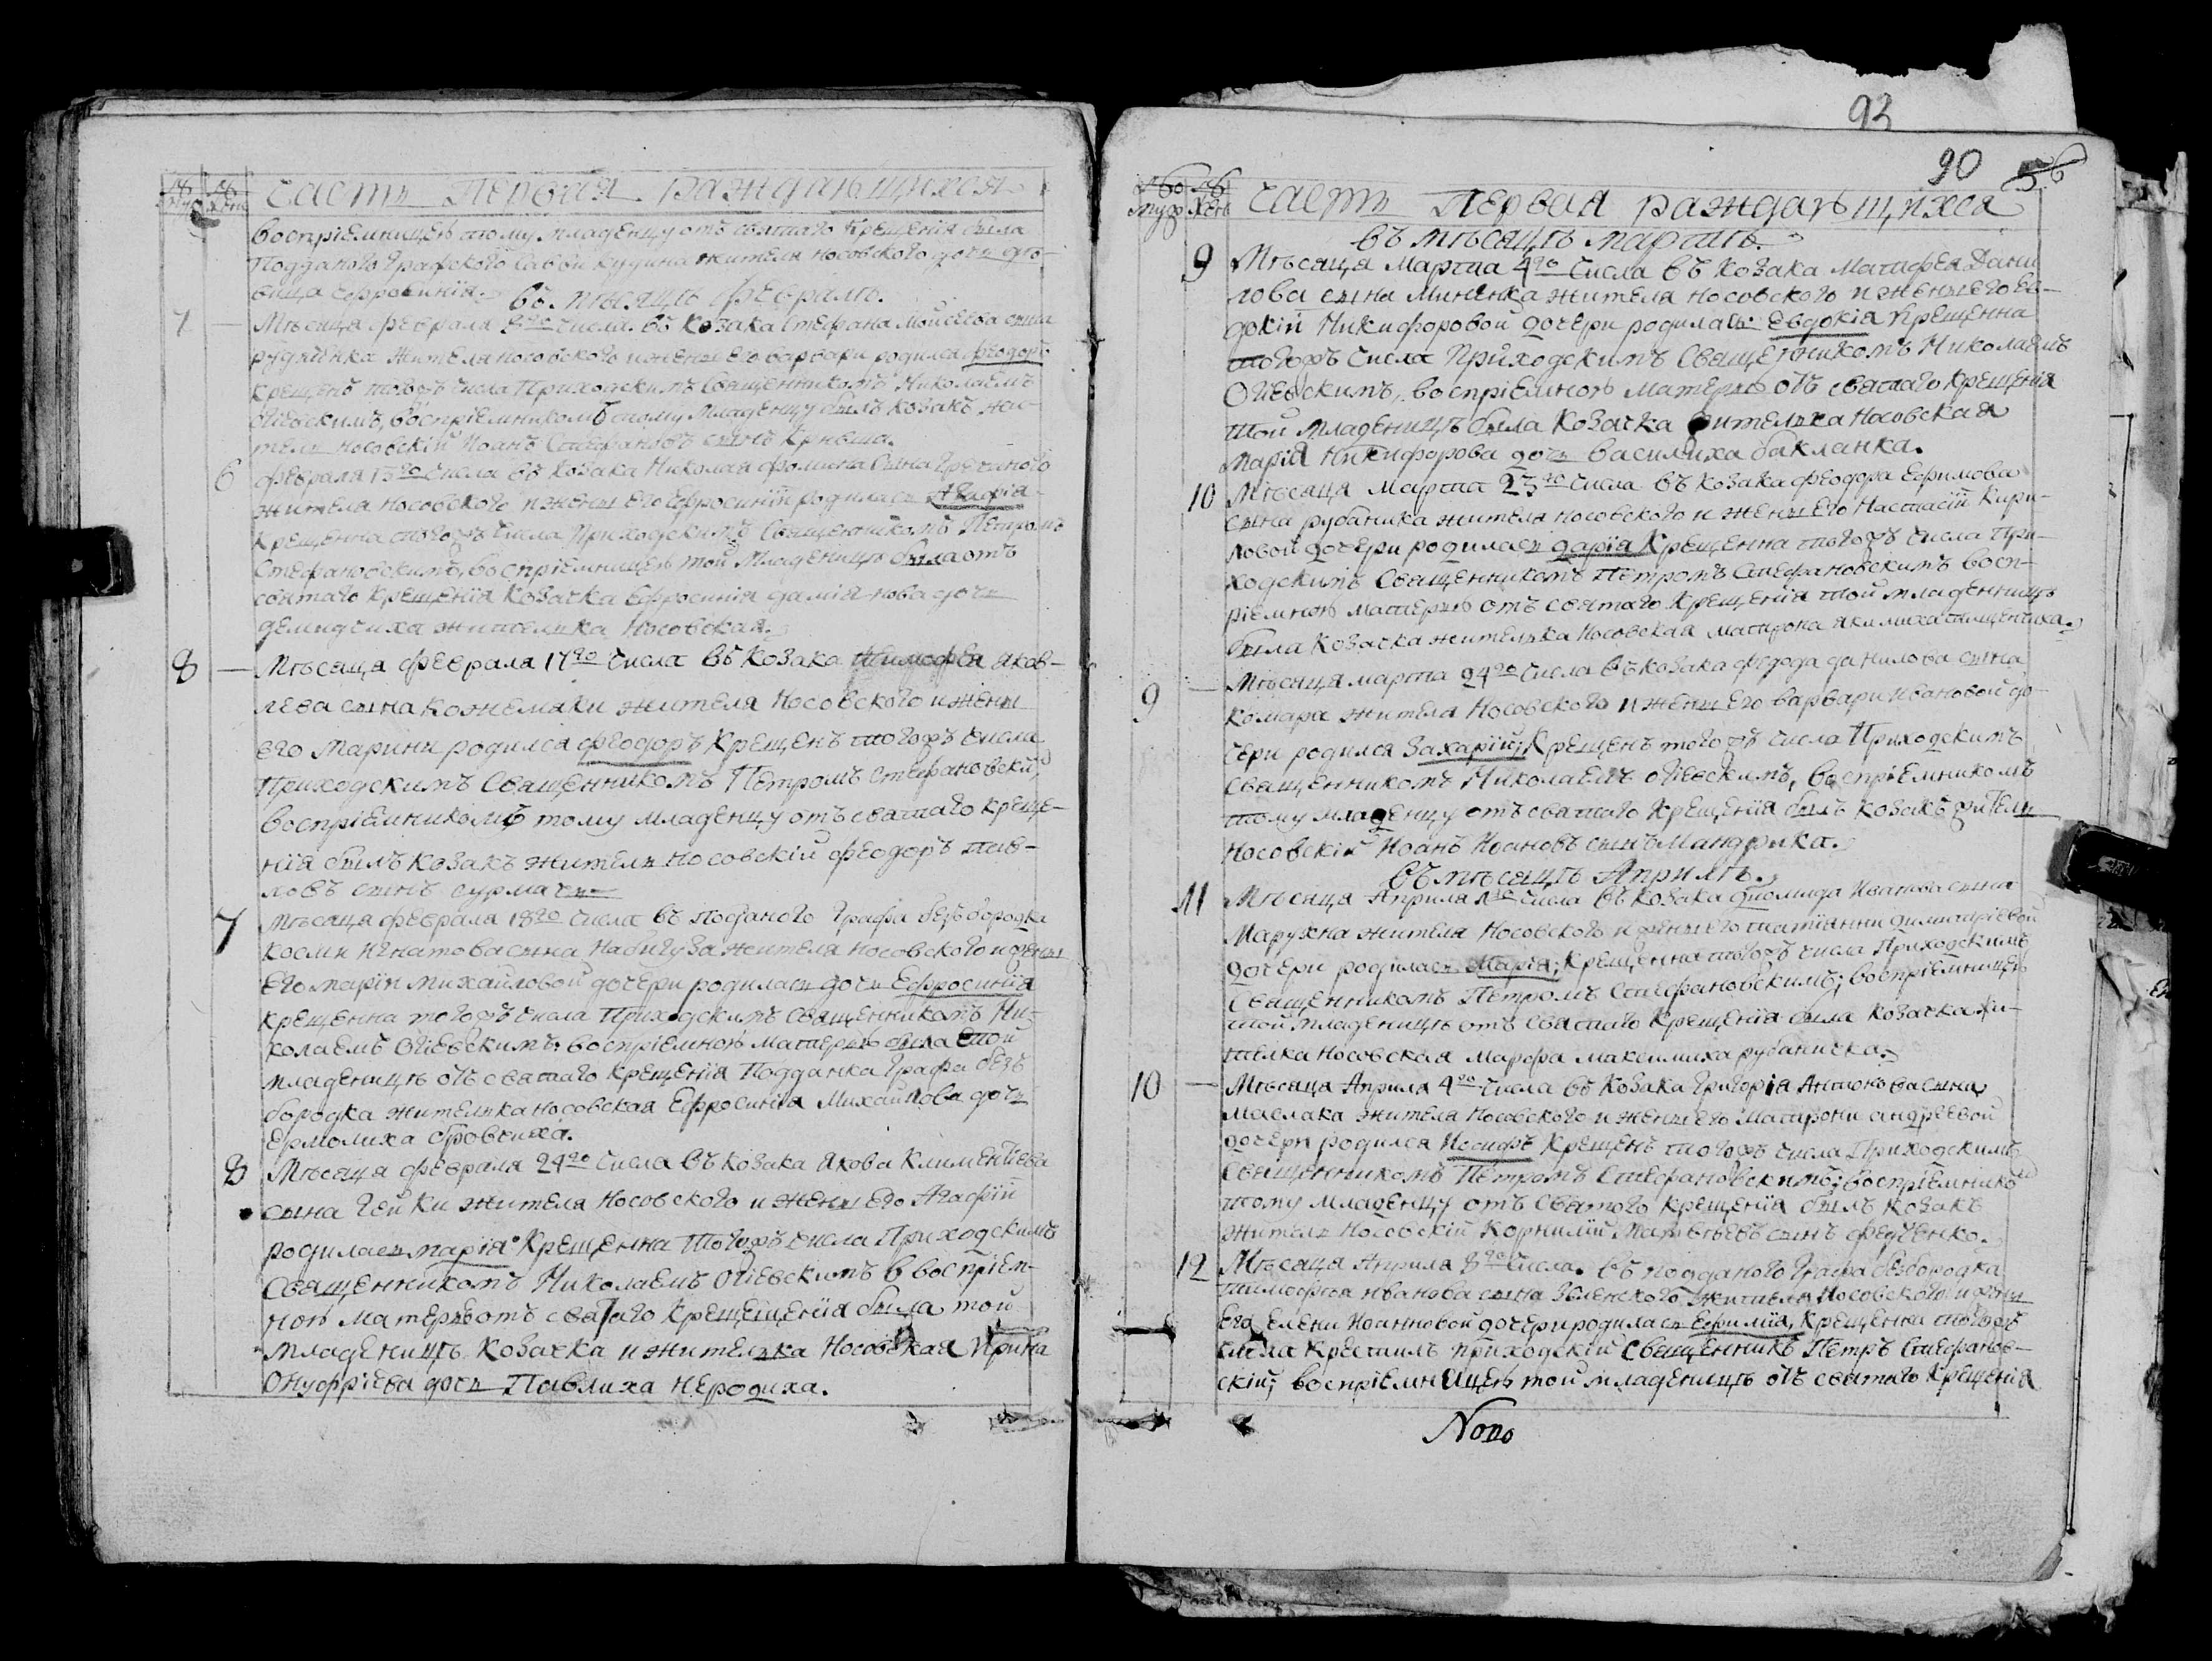 часть Первая раждающихся
воспріемницею тому младенцу отъ святаго Крещенія была
Подданого Графского Савви кудина жителя носовского дочь дѣ-
вица Ефросинія.
въ мѣсяцѣ февралѣ.
7 — Мѣсяца февраля числа въ козака Стефана Мойсеева сына
жителя носовского и жены его варвари родился феодоръ
крещенъ тогожъ числа Приходскимъ Священникомъ Николаемъ
Огіевскимъ, воспріемникомъ тому младенцу былъ козакъ жи-
тель носовскій Иоанъ Стефановъ сынъ Кривша.
6 февраля 13го числа въ козака Николая фомина сына Гречаного
жителя носовского и жены его Ефросиніи родилась Агафія
Крещенна тогожъ числа Приходскимъ Священникомъ Петромъ
Стефановскимъ, воспріемницею той младеницѣ была отъ
святаго крещенія козачка Ефросинія даміянова дочь
демидчиха жителька Носовская.
8 — Мѣсяца февраля 17го числа въ козака Тимофея Яков-
лева сына кожемяки жителя Носовского и жены
его Марини родился феодоръ Крещенъ тогожъ числа
Приходскимъ Священникомъ Петромъ Стефановскимъ
воспріемникомъ тому младенцу отъ святаго креще-
нія былъ козакъ житель носовскій феодоръ пав-
ловъ сынъ сурмачъ
7 Мѣсяца февраля 18го числа въ подданого Графа безбородка
косми Игнатова сына Набигуза жителя носовского и жены
его маріи михайловой дочери родилась дочь Ефросинія
крещенна тогожъ числа Приходскимъ Священникомъ Ни-
колаемъ Огіевскимъ, воспріемною матерью была той
младеницѣ отъ святаго крещенія Подданка Графа без
бородка жителька носовская Ефросинія Михайлова дочь
Ермолиха бровчиха.
8 Мѣсяца февраля 24го числа въ козака Якова Климентіева
сына Гейки жителя носовского и жены его Агафіи
родилась марія Крещенна тогожъ числа Приходскимъ
Священникомъ Николаемъ Огіевскимъ в воспріем-
ною матерью отъ святаго Крещещенія была той
младеницѣ козачка и жителька Носовская Ирина
Онуфріева дочь Павлиха Неродиха.
93
90 56
часть Первая раждающихся
въ мѣсяцѣ мартѣ.
9 Мѣсяца Марта 4го числа въ козака Матфея Дани
лова сына Миненка жителя носовского и жены его Ев-
докіи Никифоровой дочери родилась Евдокія крещенна
тогожъ числа Приходскимъ Священникомъ Николаемъ
Огіевскимъ, воспріемною матерью отъ святаго крещенія
той младеницѣ была козачка жителька Носовская
марія Никифорова дочь василиха бакланка.
10 Мѣсяца Марта 23го числа въ козака феодора Ефимова
сына рубаника жителя носовского и жены его Настасіи Кири-
ловой дочери родилась дарія Крещенна тогожъ числа При-
ходскимъ Священникомъ Петромъ Стефановскимъ восп-
ріемною матерью отъ святаго Крещенія той младеницѣ
была козачка жителька носовская матрона якимиха
9 — Мѣсяца марта 24го числа въ козака данилова сына
комара жителя Носовского и жены его варвари Ивановой до-
чери родился Захарій; Крещенъ тогожъ числа Приходскимъ
Священникомъ Николаемъ Огіевскимъ, воспріемникомъ
тому младенцу отъ святаго Крещенія былъ козакъ житель
носовскій Иоанъ Иоановъ сынъ Мандрика.
въ мѣсяцѣ Априлѣ.
11 Мѣсяца Априля 1го числа въ козака диомида Иванова сына
Марухна жителя Носовского и жены его татіянни димитріевой
дочери родилась Марія; Крещенна тогожъ числа Приходскимъ
Священникомъ Петромъ Стефановскимъ; воспріемницею
той младеницѣ отъ святаго Крещенія была козачка жи-
телка носовская Марфа максимиха рубаничка.
10 — Мѣсяца Априля 4го числа въ козака Григорія Антонова сына
маслака жителя носовского и жены его Матрони андреевой
дочери родился Иосифъ Крещенъ тогожъ числа Приходскимъ
Священникомъ Петромъ Стефановскимъ; воспріемникомъ
тому младенцу отъ Святого крещенія былъ козакъ
житель носовскій Корнилій Матвѣевъ сынъ федченко.
12 Мѣсяца Априля 8го числа. въ подданого Графа безбородка
тимофея иванова сына жителя Носовского и жены
его Елени Иоанновой дочери родилась Ефимія, Крещенна тогожъ
числа крестилъ приходскій Священникъ Петръ Стефанов-
скій; воспріемницею той младеницѣ отъ святаго крещенія